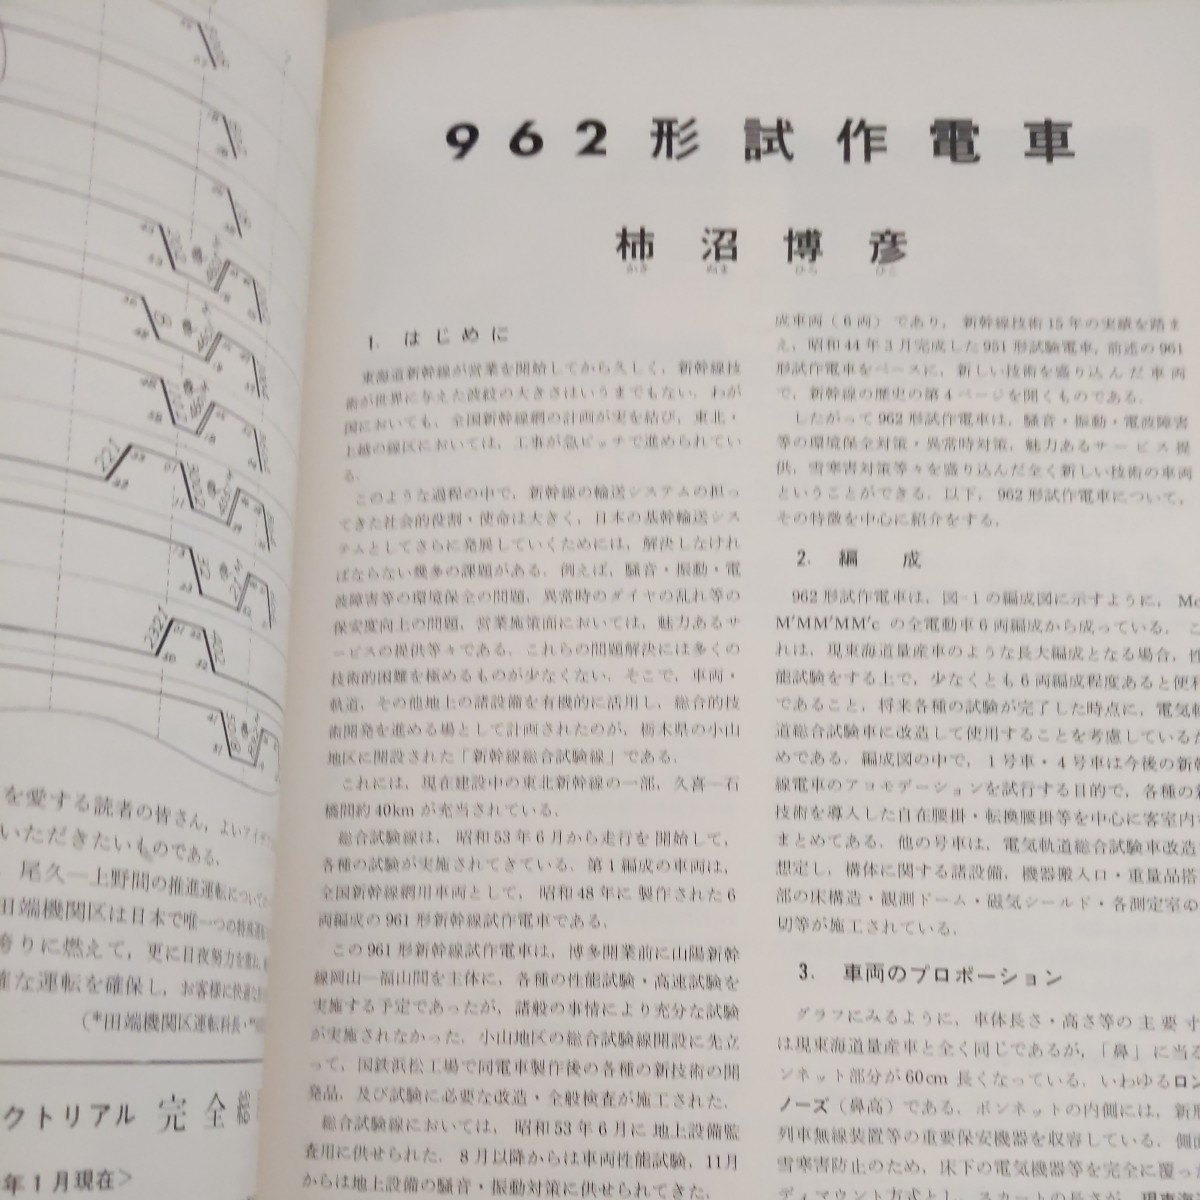 962形試作電車
柿沼博彦
かき ぬま ひろ ひこ
1. はじめに
東海道新幹線が営業を開始してから久しく,新幹線技
術が世界に与えた波紋の大きさはいうまでもない.わが
国においても,全国新幹線網の計画が実を結び,東北・
上越の線区においては,工事が急ピッチで進められてい
る.
このような過程の中で,新幹線の輸送システムの担っ
てきた社会的役割・使命は大きく,日本の基幹輸送シス
テムとしてさらに発展していくためには,解決しなけれ
ばならない幾多の課題がある.例えば,騒音・振動・電
波障害等の環境保全の問題,異常時のダイヤの乱れ等の
保安度向上の問題,営業施策面においては,魅力あるサ
ービスの提供等々である.これらの問題解決には多くの
技術的困難を極めるものが少なくない.そこで,車両・
軌道,その他地上の諸設備を有機的に活用し,総合的技
術開発を進める場として計画されたのが,栃木県の小山
地区に開設された「新幹線総合試験線」である.
これには,現在建設中の東北新幹線の一部,久喜—石
橋間約40kmが充当されている.
総合試験線は,昭和53年6月から走行を開始して,
各種の試験が実施されてきている.第1編成の車両は,
全国新幹線網用車両として,昭和48年に製作された6
両編成の961形新幹線試作電車である.
この961形新幹線試作電車は,博多開業前に山陽新幹
線岡山—福山間を主体に,各種の性能試験・高速試験を
実施する予定であったが,諸般の事情により充分な試験
が実施されなかった.小山地区の総合試験線開設に先立
って,国鉄浜松工場で同電車製作後の各種の新技術の開
発品,及び試験に必要な改造・全般検査が施工された.
総合試験線においては,昭和53年6月に地上設備監
査用に供せられた.8月以降からは車両性能試験,11月
からは地上設備の騒音・振動対策に供せられてきた.
成車両(6両)であり,新幹線技術15年の実績を踏ま
え,昭和44年3月完成した951形試験電車,前述の961
形試作電車をベースに,新しい技術を盛り込んだ車両
で,新幹線の歴史の第4ページを開くものである.
したがって962形試作電車は,騒音・振動・電波障害
等の環境保全対策・異常時対策,魅力あるサービス提
供,雪寒害対策等々を盛り込んだ全く新しい技術の車両
ということができる.以下,962形試作電車について,
その特徴を中心に紹介をする.
2. 編成
962形試作電車は,図-1の編成図に示すように,Mc
M′MM′MM′cの全電動車6両編成から成っている.こ
れは,現東海道量産車のような長大編成となる場合,性
能試験をする上で,少なくとも6両編成程度あると便利
であること,将来各種の試験が完了した時点に,電気軌
道総合試験車に改造して使用することを考慮しているた
めである.編成図の中で,1号車・4号車は今後の新幹
線電車のアコモデーションを試行する目的で,各種の新
技術を導入した自在腰掛・転換腰掛等を中心に客室内を
まとめてある.他の号車は,電気軌道総合試験車改造を
想定し,構体に関する諸設備,機器搬入口・重量品搭
部の床構造・観測ドーム・磁気シールド・各測定室の
切等が施工されている.
3. 車両のプロポーション
グラフにみるように,車体長さ・高さ等の主要寸
は現東海道量産車と全く同じであるが,「鼻」に当る
ンネット部分が60cm長くなっている.いわゆるロン
ノーズ(鼻高)である.ボンネットの内側には,新形
列車無線装置等の重要保安機器を収容している.側面
雪寒害防止のため,床下の電気機器等を完全に覆った
ディマウント方式とし,スカートの長さが,現車
を愛する読者の皆さん,よいアイデ
いただきたいものである.
尾久—上野間の推進運転について
田端機関区は日本で唯一つの特殊運転
誇りに燃えて,更に日夜努力を重ね,
確な運転を確保し,お客様に快適
(*田端機関区運転科長・
クトリアル 完全総
年1月現在>
221
2321